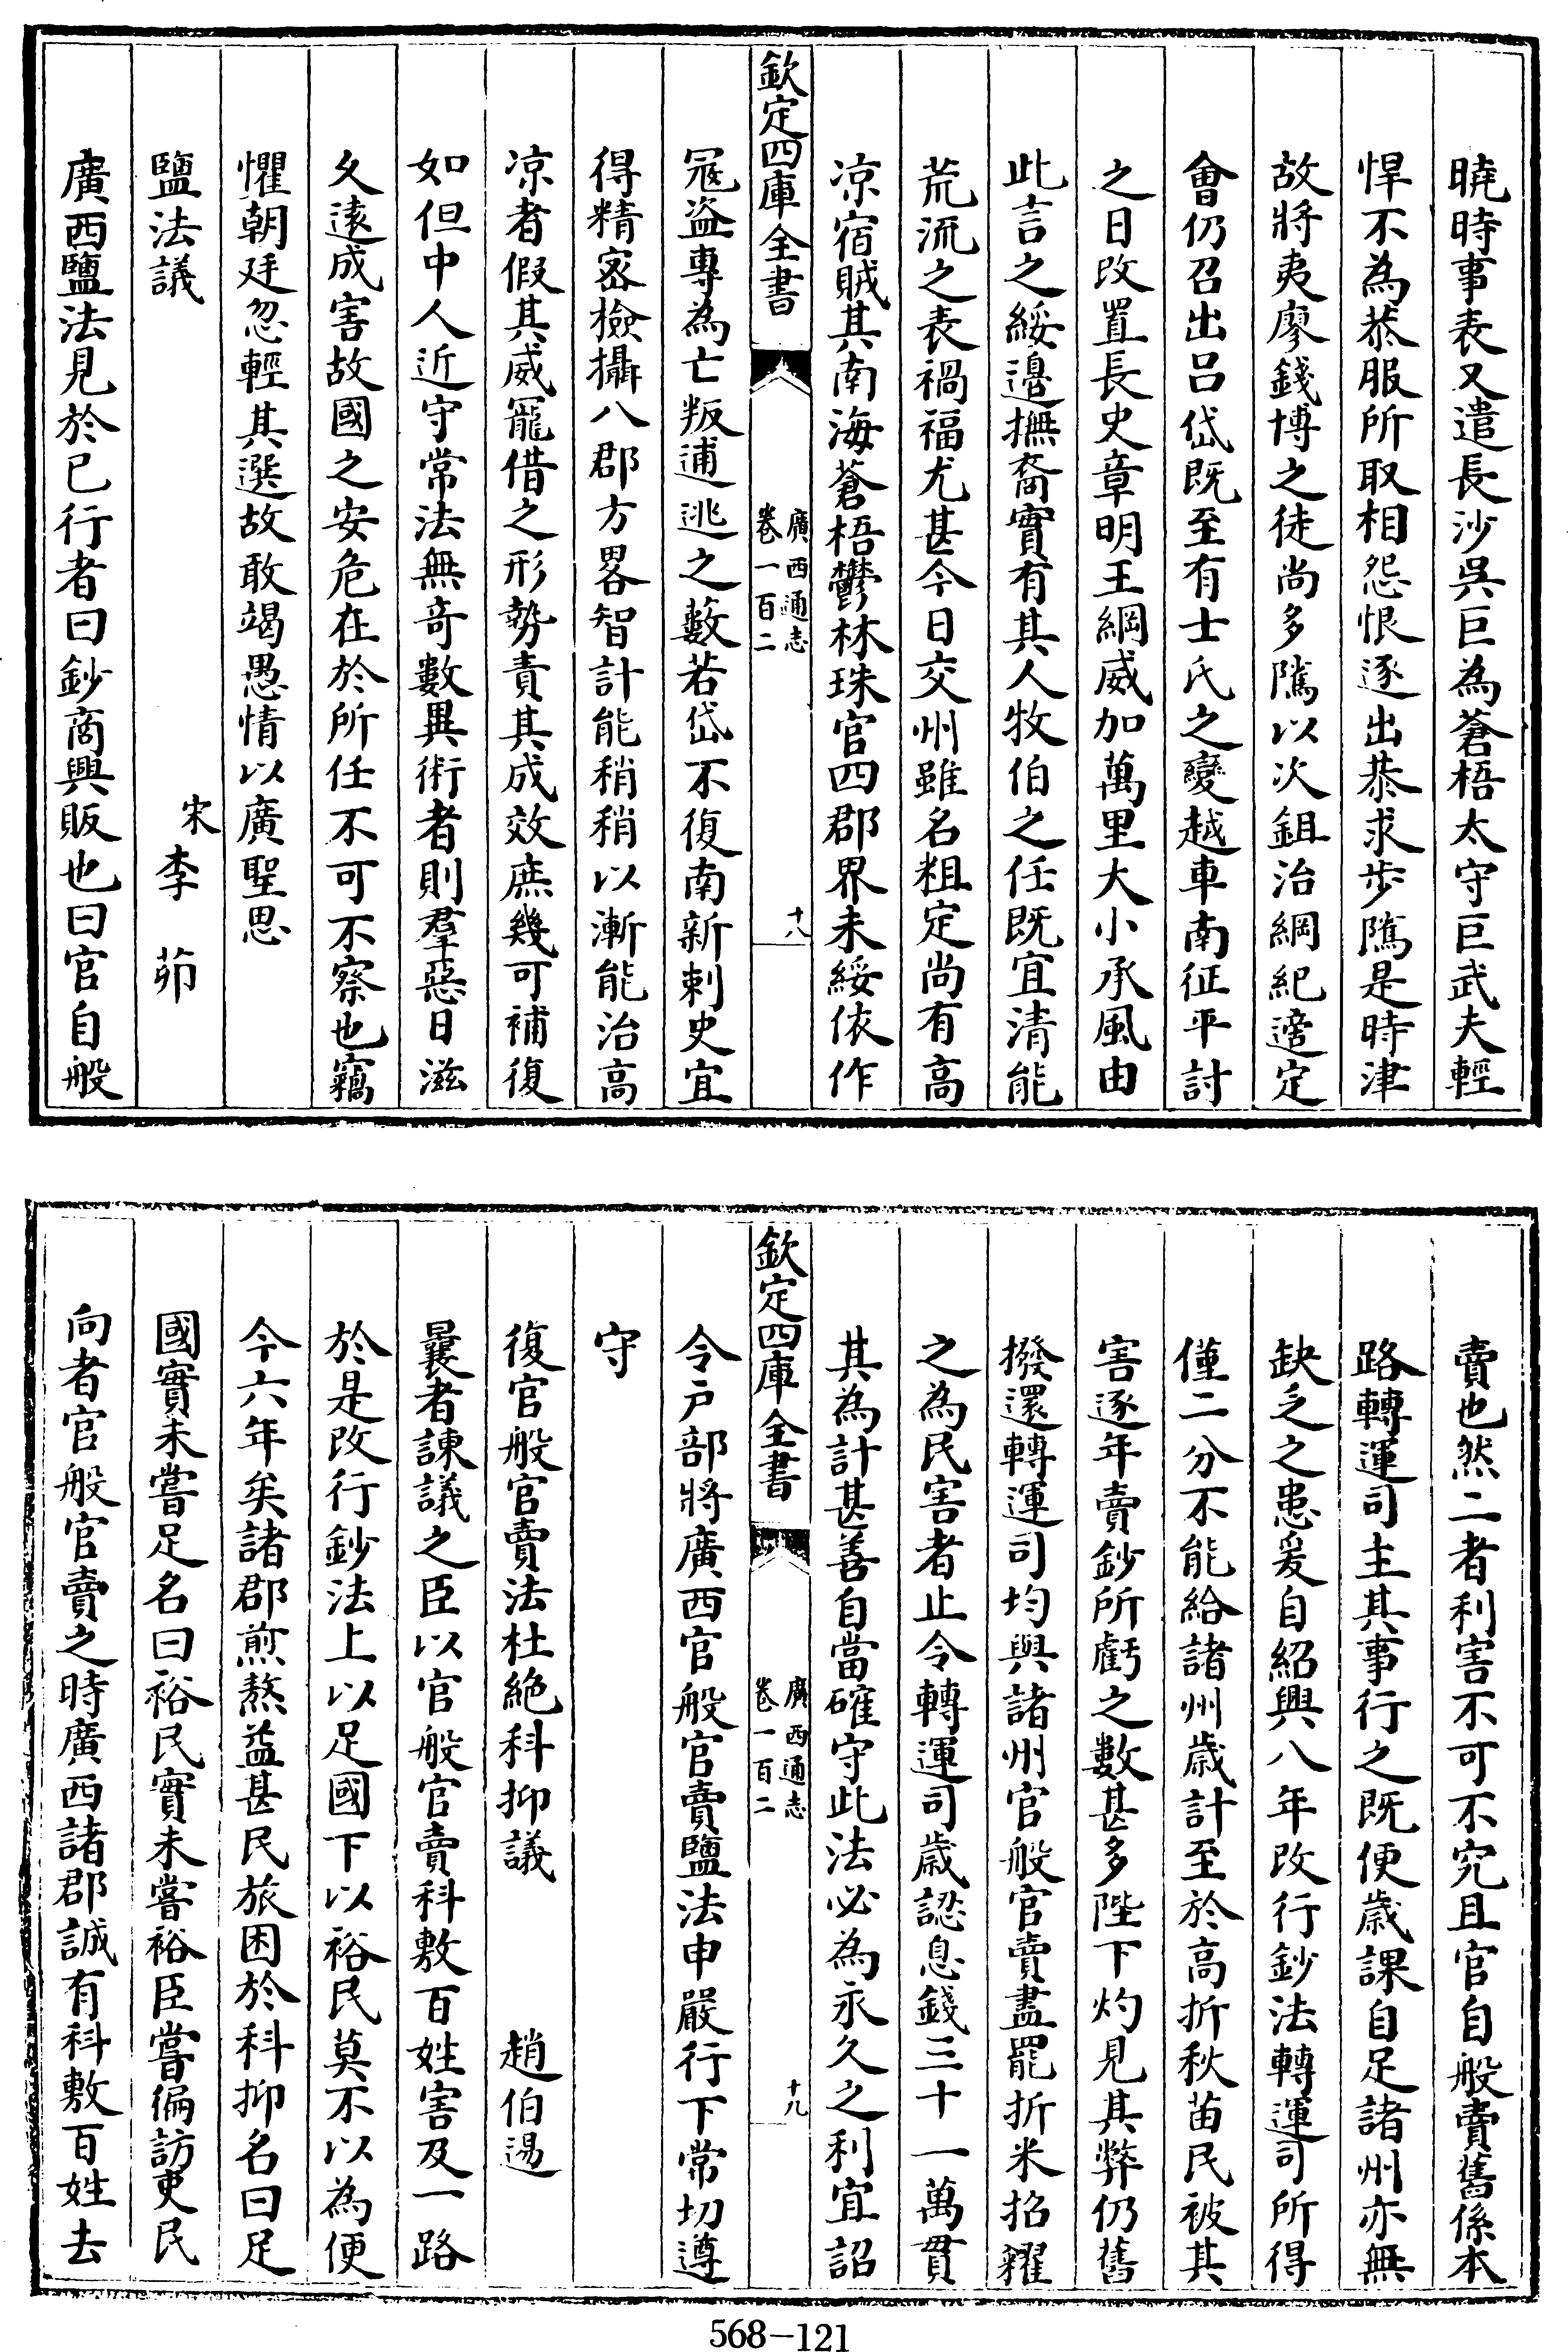 曉時事表又遣長沙吳巨為蒼梧太守巨武夫輕
悍不為恭服所取相怨恨逐出恭求步隲是時津
故將夷廖錢博之徒尚多隲以次鉏治綱紀適定
會仍召出呂岱既至有士氏之變越車南征平討
之日改置長史章明王綱威加萬里大小承風由
此言之綏邊撫裔實有其人牧伯之任既宜清能
荒流之表禍福尤甚今日交州雖名粗定尚有高
凉宿賊其南海蒼梧鬱林珠官四郡界未綏依作
欽定四庫全書
廣西通志
卷一百二
十八
冦盜專為亡叛逋逃之藪若岱不復南新刺史宜
得精宻檢攝八郡方畧智計能稍稍以漸能治高
凉者假其威寵借之形勢責其成效庶幾可補復
如但中人近守常法無竒數異術者則羣惡日滋
久逺成害故國之安危在於所任不可不察也竊
懼朝廷忽輕其選故敢竭愚情以廣聖思
鹽法議
宋李茆
廣西鹽法見於已行者曰鈔商興販也曰官自般
賣也然二者利害不可不究且官自般賣舊係本
路轉運司主其事行之既便歳課自足諸州亦無
缺乏之患爰自紹興八年改行鈔法轉運司所得
僅二分不能給諸州歳計至於高折秋苗民被其
害逐年賣鈔所虧之數甚多陛下灼見其弊仍舊
撥還轉運司均與諸州官般官賣盡罷折米招糴
之為民害者止令轉運司歳認息錢三十一萬貫
其為計甚善自當確守此法必為永久之利宜詔
欽定四庫全書
廣西通志
卷一百二
十九
令户部將廣西官般官賣鹽法申嚴行下常切遵
守
復官般官賣法杜絶科抑議
趙伯逷
曩者諫議之臣以官般官賣科敷百姓害及一路
於是改行鈔法上以足國下以裕民莫不以為便
今六年矣諸郡煎熬益甚民旅困於科抑名曰足
國實未嘗足名曰裕民實未嘗裕臣嘗徧訪吏民
向者官般官賣之時廣西諸郡誠有科敷百姓去
568-121